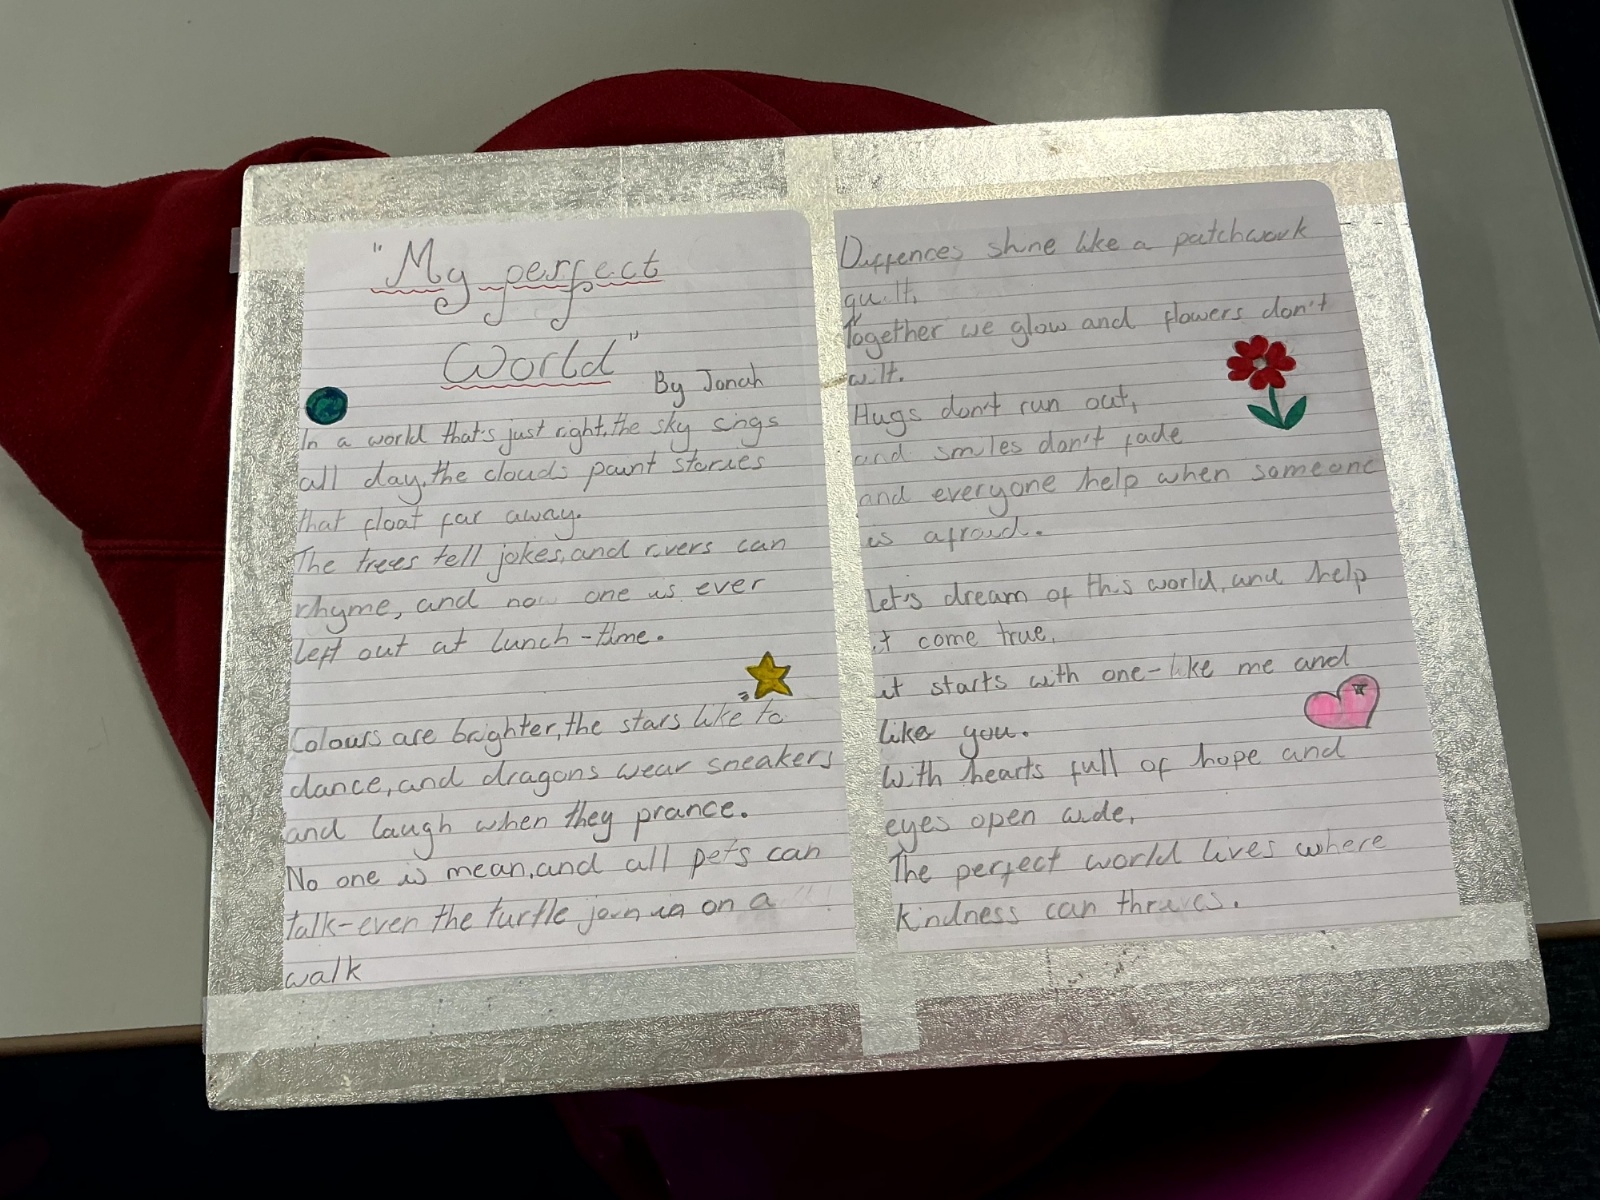 "My perfect
World"
By Jonah
In a world that's just right, the sky sings
all day, the clouds paint stories
that float far away.
The trees tell jokes, and rivers can
rhyme, and no one is ever
left out at lunch-time.
Colours are brighter, the stars like to
dance, and dragons wear sneakers
and laugh when they prance.
No one is mean, and all pets can
talk-even the turtle join on a
walk
Diffences shine like a patchwork
quilt,
Together we glow and flowers don't
wilt.
Hugs don't run out,
and smiles don't fade
and everyone help when someone
is afraid.
Let's dream of this world, and help
it come true,
it starts with one-like me and
like you.
With hearts full of hope and
eyes open wide,
The perfect world lives where
kindness can